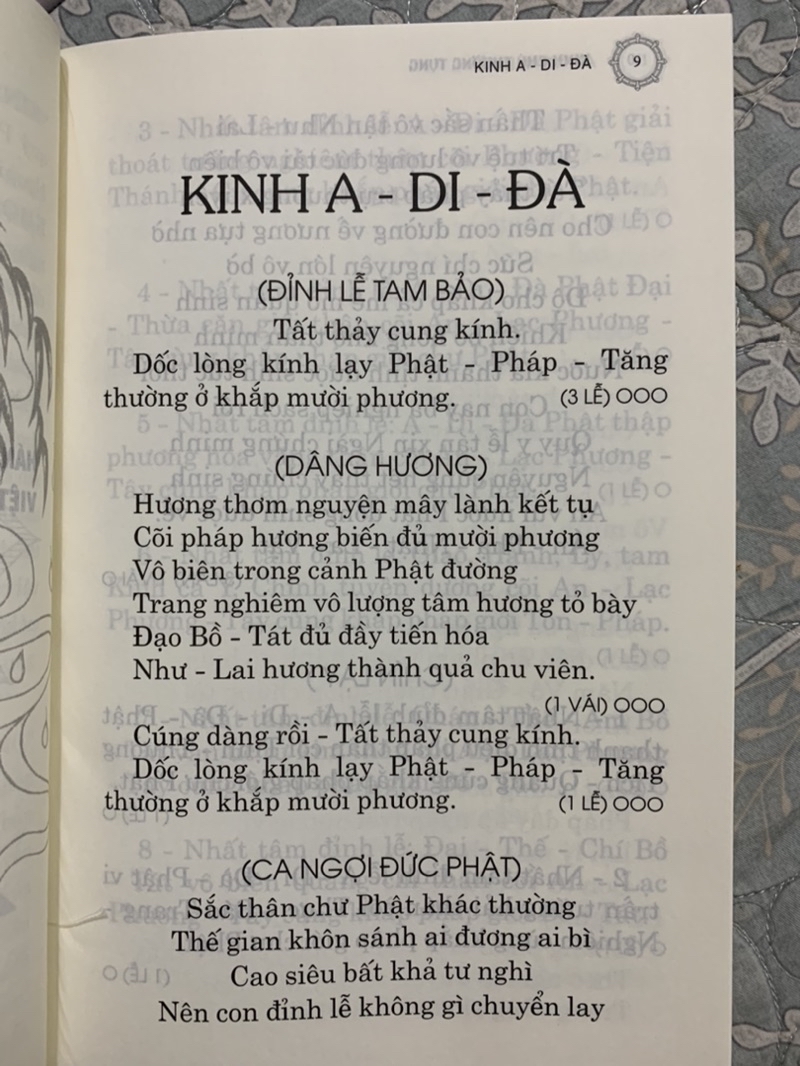 KINH A - DI - ĐÀ 9
KINH A - DI - ĐÀ
(ĐỈNH LỄ TAM BẢO)
Tất thảy cung kính.
Dốc lòng kính lạy Phật - Pháp - Tăng
thường ở khắp mười phương. (3 LỄ) OOO
(DÂNG HƯƠNG)
Hương thơm nguyện mây lành kết tụ
Cõi pháp hương biến đủ mười phương
Vô biên trong cảnh Phật đường
Trang nghiêm vô lượng tâm hương tỏ bày
Đạo Bồ - Tát đủ đầy tiến hóa
Như - Lai hương thành quả chu viên.
(1 VÁI) OOO
Cúng dàng rồi - Tất thảy cung kính.
Dốc lòng kính lạy Phật - Pháp - Tăng
thường ở khắp mười phương. (1 LỄ) OOO
(CA NGỢI ĐỨC PHẬT)
Sắc thân chư Phật khác thường
Thế gian khôn sánh ai đương ai bì
Cao siêu bất khả tư nghì
Nên con đỉnh lễ không gì chuyển lay